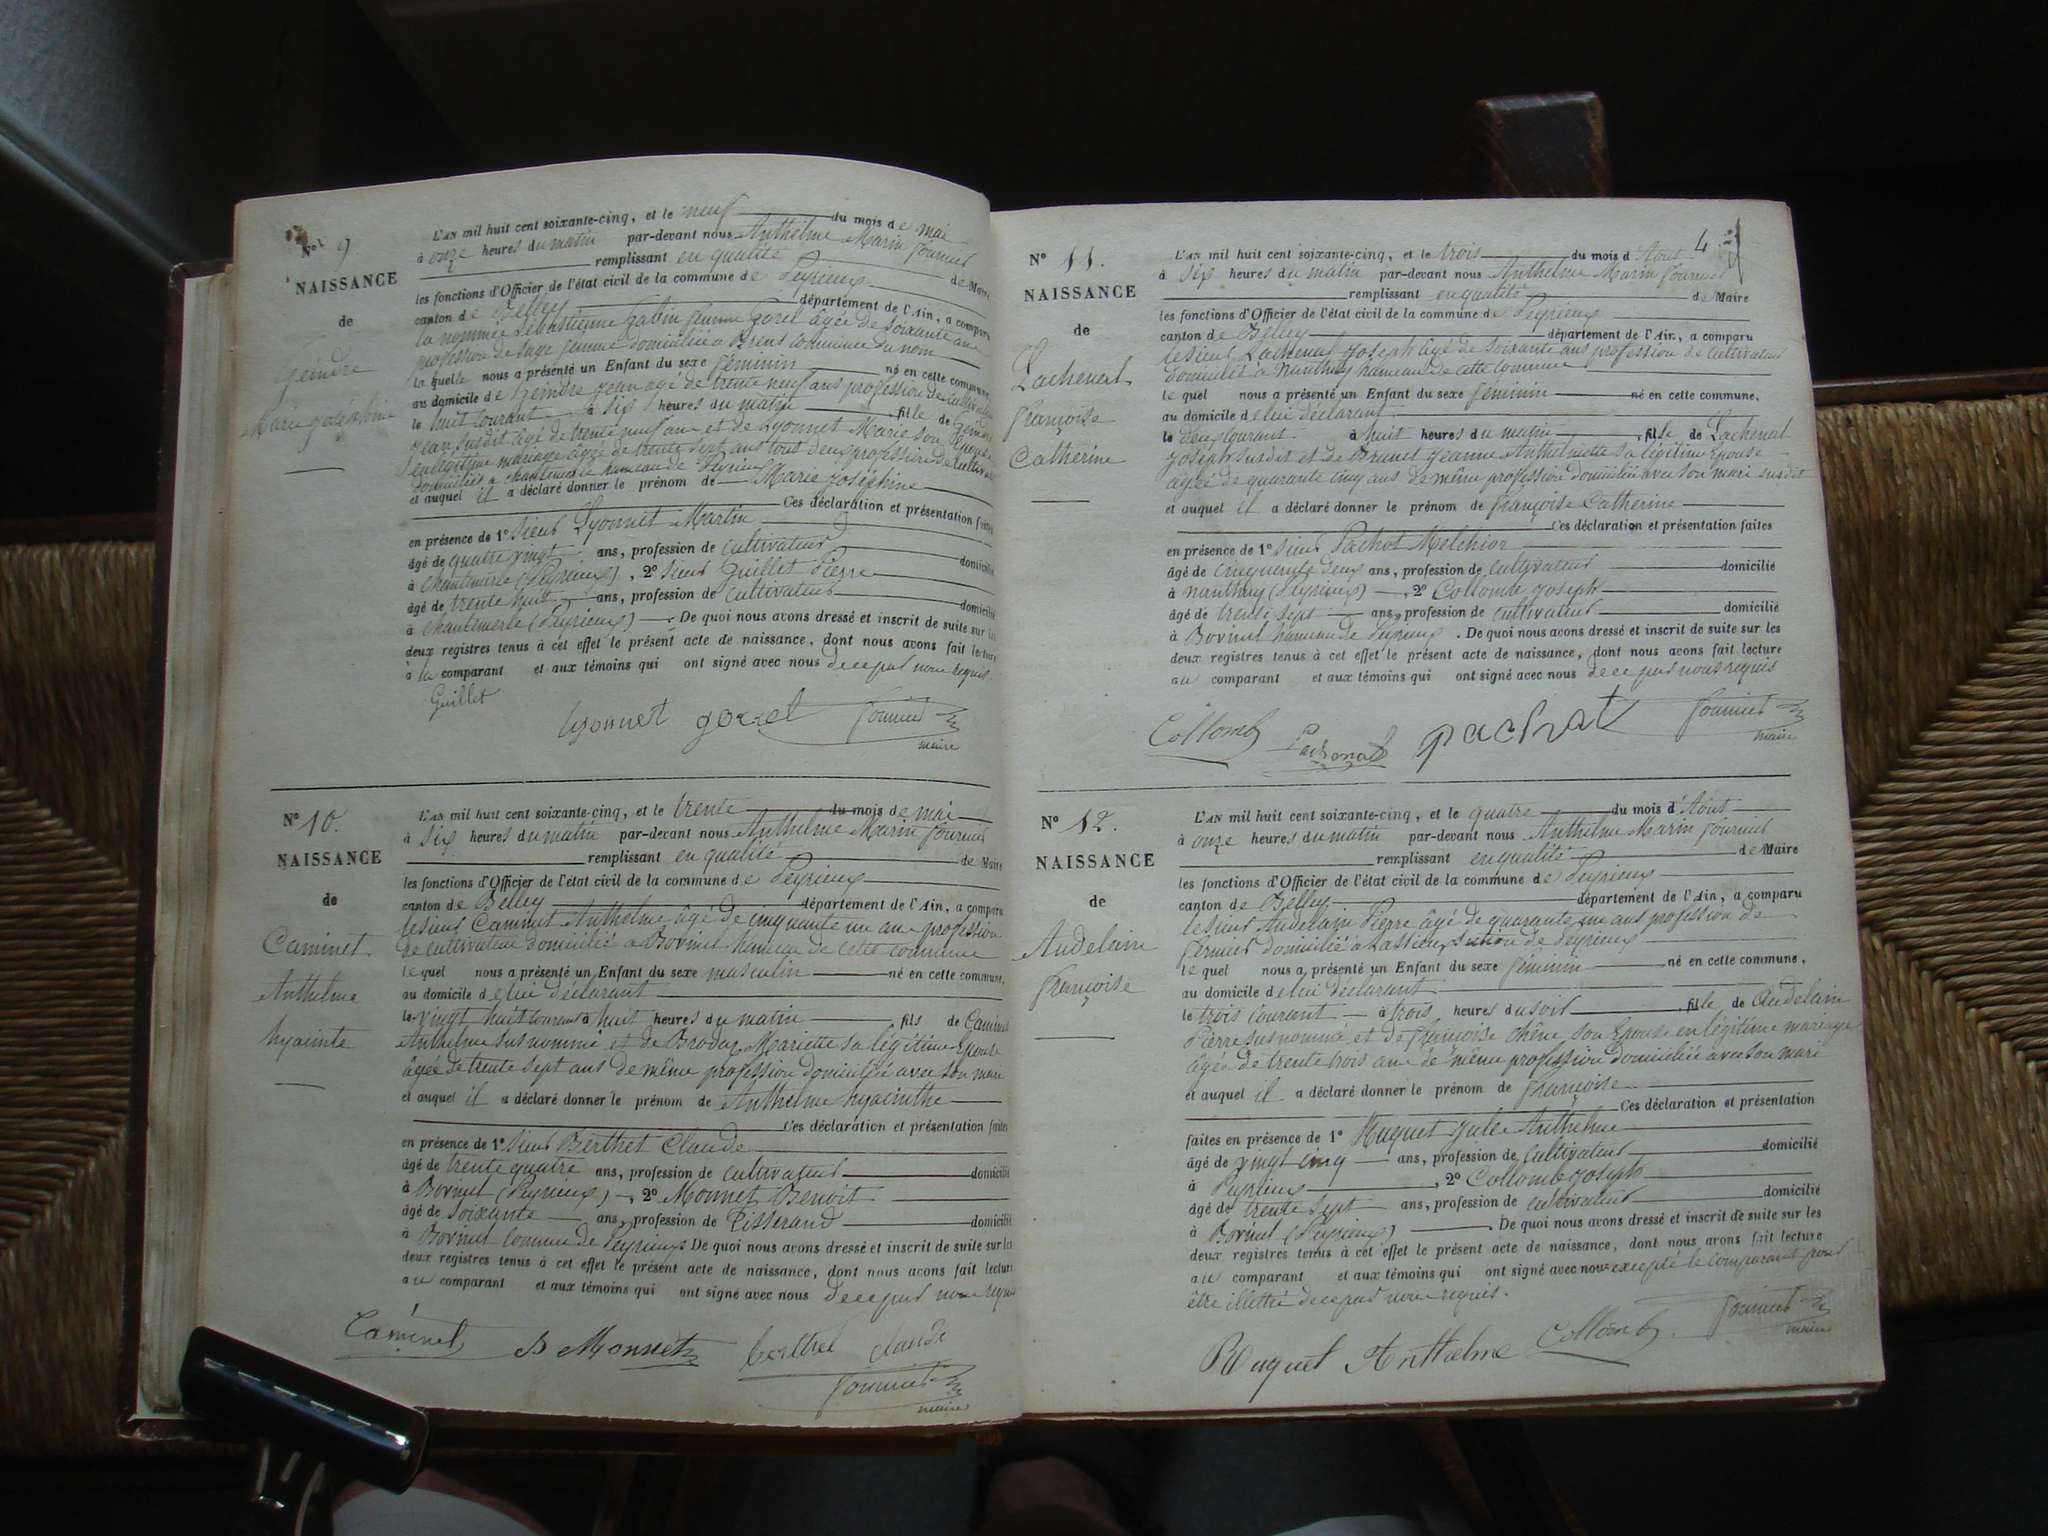 N° 9.
NAISSANCE
de
Geindre
Marie Joséphine
L'AN mil huit cent soixante-cinq, et le neuf du mois de mai
à onze heures du matin par-devant nous Anthelme Marin Fournier
remplissant en qualité de Maire
les fonctions d'Officier de l'état civil de la commune de Peyrieux
canton de Belley département de l'Ain, a comparu
la nommée Sébastienne Gabin femme Gorel âgée de soixante ans
profession de sage femme domiciliée à Brens commune du nom
la quelle nous a présenté un Enfant du sexe féminin né en cette commune,
au domicile de Geindre Jean âgé de trente neuf ans profession de cultivateur
le huit courant à six heures du matin, fille de Geindre
Jean susdit âgé de trente neuf ans et de Lyonnet Marie son épouse
en légitime mariage âgée de trente sept ans tous deux profession de cultivateur
domiciliés à chantemerle hameau de Peyrieux
et auquel il a déclaré donner le prénom de Marie Joséphine
Ces déclaration et présentation faites
en présence de 1° sieur Lyonnet Martin
âgé de quatre vingt ans, profession de cultivateur domicilié
à chantemerle (Peyrieux), 2° sieur Guillet Pierre
âgé de trente huit ans, profession de cultivateur domicilié
à chantemerle (Peyrieux). De quoi nous avons dressé et inscrit de suite sur les
deux registres tenus à cet effet le présent acte de naissance, dont nous avons fait lecture
à la comparant et aux témoins qui ont signé avec nous de ce par nous requis.
Guillet
Lyonnet gorrel Fournier
maire
N° 10.
NAISSANCE
de
Caminet
Anthelme
hyacinte
L'AN mil huit cent soixante-cinq, et le trente du mois de mai
à six heures du matin par-devant nous Anthelme Marin Fournier
remplissant en qualité de Maire
les fonctions d'Officier de l'état civil de la commune de Peyrieux
canton de Belley département de l'Ain, a comparu
le sieur Caminet Anthelme âgé de cinquante un ans profession
de cultivateur domicilié à Bovinel hameau de cette commune
le quel nous a présenté un Enfant du sexe masculin né en cette commune,
au domicile de lui déclarant
le vingt huit courant à huit heures du matin, fils de Caminet
Anthelme susnommé et de Brodaz Mariette sa légitime épouse
âgée de trente sept ans de même profession domiciliée avec son mari
et auquel il a déclaré donner le prénom de Anthelme hyacinthe
Ces déclaration et présentation faites
en présence de 1° sieur Berthet Claude
âgé de trente quatre ans, profession de cultivateur domicilié
à Bovinel (Peyrieux), 2° Monnet Benoit
âgé de soixante ans, profession de Tisserand domicilié
à Bovinel commune de Peyrieux De quoi nous avons dressé et inscrit de suite sur les
deux registres tenus à cet effet le présent acte de naissance, dont nous avons fait lecture
au comparant et aux témoins qui ont signé avec nous de ce par nous requis
Caminet B Monnet berthet claude
Fournier
maire
4
N° 11.
NAISSANCE
de
Lachenal
françoise
Catherine
L'AN mil huit cent soixante-cinq, et le trois du mois d Aout
à six heures du matin par-devant nous Anthelme Marin Fournier
remplissant en qualité de Maire
les fonctions d'Officier de l'état civil de la commune de Peyrieux
canton de Belley département de l'Ain, a comparu
le sieur Lachenal Joseph âgé de soixante ans profession de cultivateur
domicilié à Nanthuy hameau de cette commune
le quel nous a présenté un Enfant du sexe féminin né en cette commune,
au domicile de lui déclarant
le deux courant à huit heures du matin, fille de Lachenal
Joseph susdit et de Brunet Jeanne Anthelmette sa légitime épouse
âgée de quarante cinq ans de même profession domiciliée avec son mari susdit
et auquel il a déclaré donner le prénom de françoise Catherine
Ces déclaration et présentation faites
en présence de 1° sieur Pachot Melchior
âgé de cinquante deux ans, profession de cultivateur domicilié
à Nanthuy (Peyrieux), 2° Collomb Joseph
âgé de trente sept ans, profession de cultivateur domicilié
à Bovinel hameau de Peyrieux. De quoi nous avons dressé et inscrit de suite sur les
deux registres tenus à cet effet le présent acte de naissance, dont nous avons fait lecture
au comparant et aux témoins qui ont signé avec nous de ce par nous requis
Collomb Lachenal pachot Fournier
maire
N° 12.
NAISSANCE
de
Audelain
françoise
L'AN mil huit cent soixante-cinq, et le quatre du mois d'Aout
à onze heures du matin par-devant nous Anthelme Marin Fournier
remplissant en qualité de Maire
les fonctions d'Officier de l'état civil de la commune de Peyrieux
canton de Belley département de l'Ain, a comparu
le sieur Audelain Pierre âgé de quarante un ans profession de
fermier domicilié à section de Peyrieux
le quel nous a présenté un Enfant du sexe féminin né en cette commune,
au domicile de lui déclarant
le trois courant à trois heures du soir, fille de Audelain
Pierre susnommé et de françoise chêne son épouse en légitime mariage
âgée de trente trois ans de même profession domiciliée avec son mari
et auquel il a déclaré donner le prénom de françoise
Ces déclaration et présentation
faites en présence de 1° Huguet Jule Anthelme
âgé de vingt cinq ans, profession de cultivateur domicilié
à Peyrieux, 2° Collomb Joseph
âgé de trente sept ans, profession de cultivateur domicilié
à Bovinel (Peyrieux). De quoi nous avons dressé et inscrit de suite sur les
deux registres tenus à cet effet le présent acte de naissance, dont nous avons fait lecture
au comparant et aux témoins qui ont signé avec nous excepté le comparant pour
être illettré de ce par nous requis.
Huguet Anthelme Collomb Fournier
maire